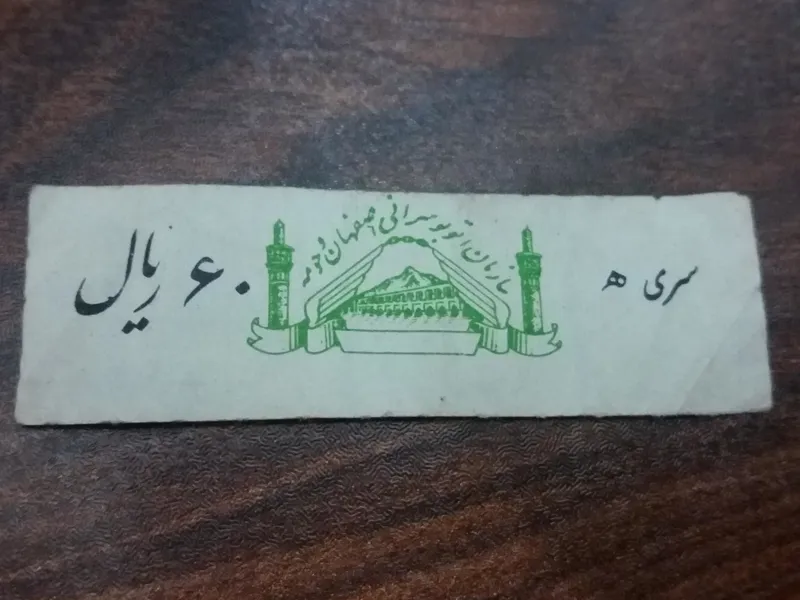 سری ه
سازمان اتوبوسرانی اصفهان و حومه
۶۰ ریال